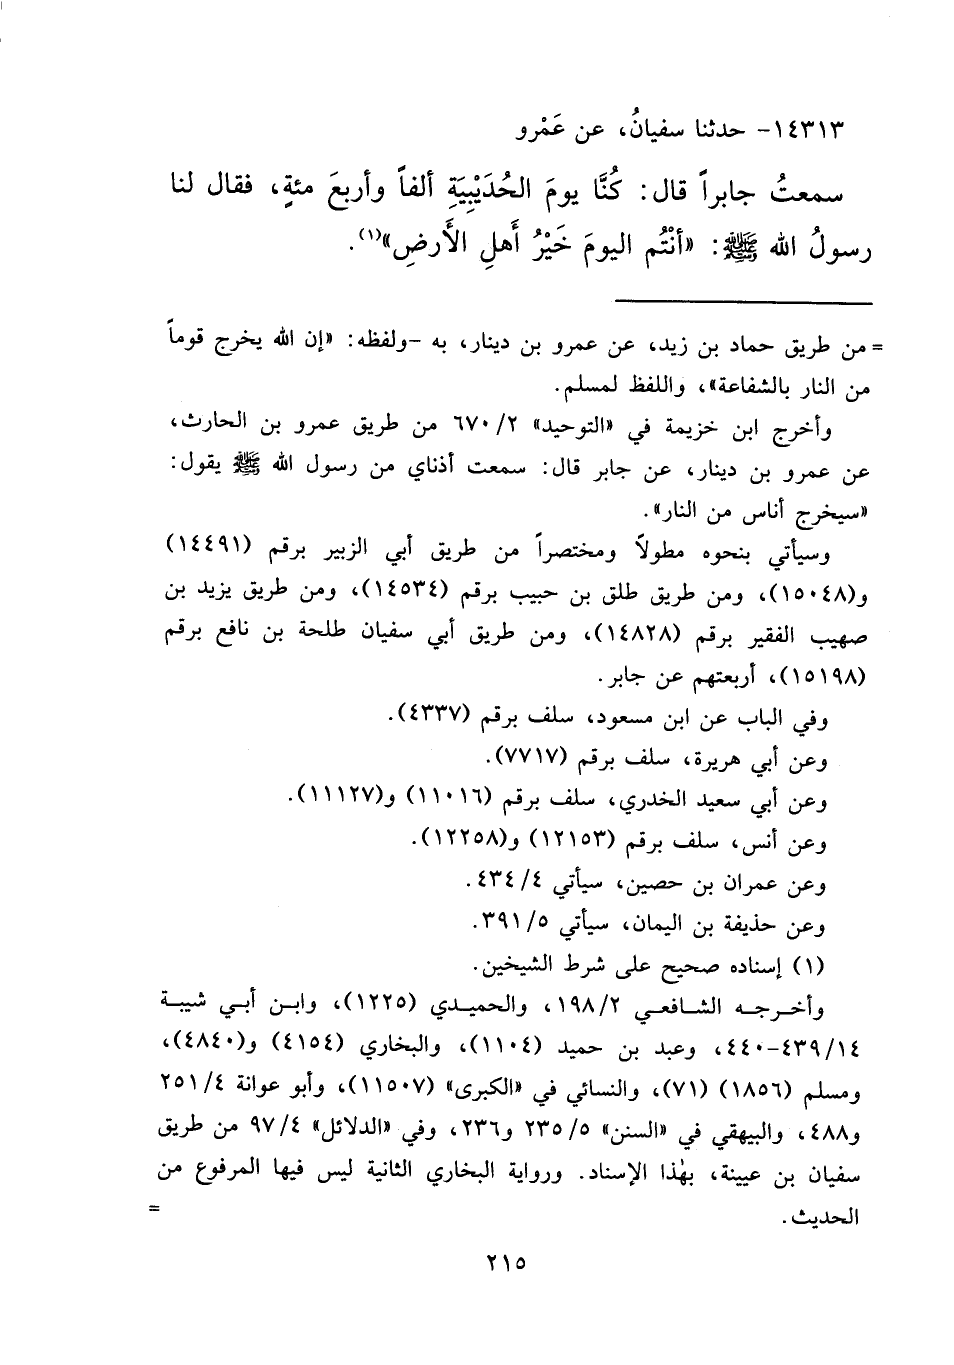 ١٤٣١٣- حدثنا سفيانُ، عن عَمْرو
سمعتُ جابراً قال: كُنَّا يومَ الحُدَيْبِيَةِ ألفاً وأربعَ مئةٍ، فقال لنا
رسولُ الله ﷺ: «أنْتُم اليومَ خَيْرُ أَهلِ الأَرضِ»(١).
= من طريق حماد بن زيد، عن عمرو بن دينار، به -ولفظه: «إن الله يخرج قوماً
من النار بالشفاعة»، واللفظ لمسلم.
وأخرج ابن خزيمة في «التوحيد» ٢/ ٦٧٠ من طريق عمرو بن الحارث،
عن عمرو بن دينار، عن جابر قال: سمعت أذناي من رسول الله ﷺ يقول:
«سيخرج أناس من النار».
وسيأتي بنحوه مطولاً ومختصراً من طريق أبي الزبير برقم (١٤٤٩١)
و(١٥٠٤٨)، ومن طريق طلق بن حبيب برقم (١٤٥٣٤)، ومن طريق يزيد بن
صهيب الفقير برقم (١٤٨٢٨)، ومن طريق أبي سفيان طلحة بن نافع برقم
(١٥١٩٨)، أربعتهم عن جابر.
وفي الباب عن ابن مسعود، سلف برقم (٤٣٣٧).
وعن أبي هريرة، سلف برقم (٧٧١٧).
وعن أبي سعيد الخدري، سلف برقم (١١٠١٦) و(١١١٢٧).
وعن أنس، سلف برقم (١٢١٥٣) و(١٢٢٥٨).
وعن عمران بن حصين، سيأتي ٤/ ٤٣٤.
وعن حذيفة بن اليمان، سيأتي ٥/ ٣٩١.
(١) إسناده صحيح على شرط الشيخين.
وأخرجه الشافعي ٢/ ١٩٨، والحميدي (١٢٢٥)، وابن أبي شيبة
١٤/ ٤٣٩-٤٤٠، وعبد بن حميد (١١٠٤)، والبخاري (٤١٥٤) و(٤٨٤٠)،
ومسلم (١٨٥٦) (٧١)، والنسائي في «الكبرى» (١١٥٠٧)، وأبو عوانة ٤/ ٢٥١
و٤٨٨، والبيهقي في «السنن» ٥/ ٢٣٥ و٢٣٦، وفي «الدلائل» ٤/ ٩٧ من طريق
سفيان بن عيينة، بهٰذا الإسناد. ورواية البخاري الثانية ليس فيها المرفوع من
الحديث. =
٢١٥